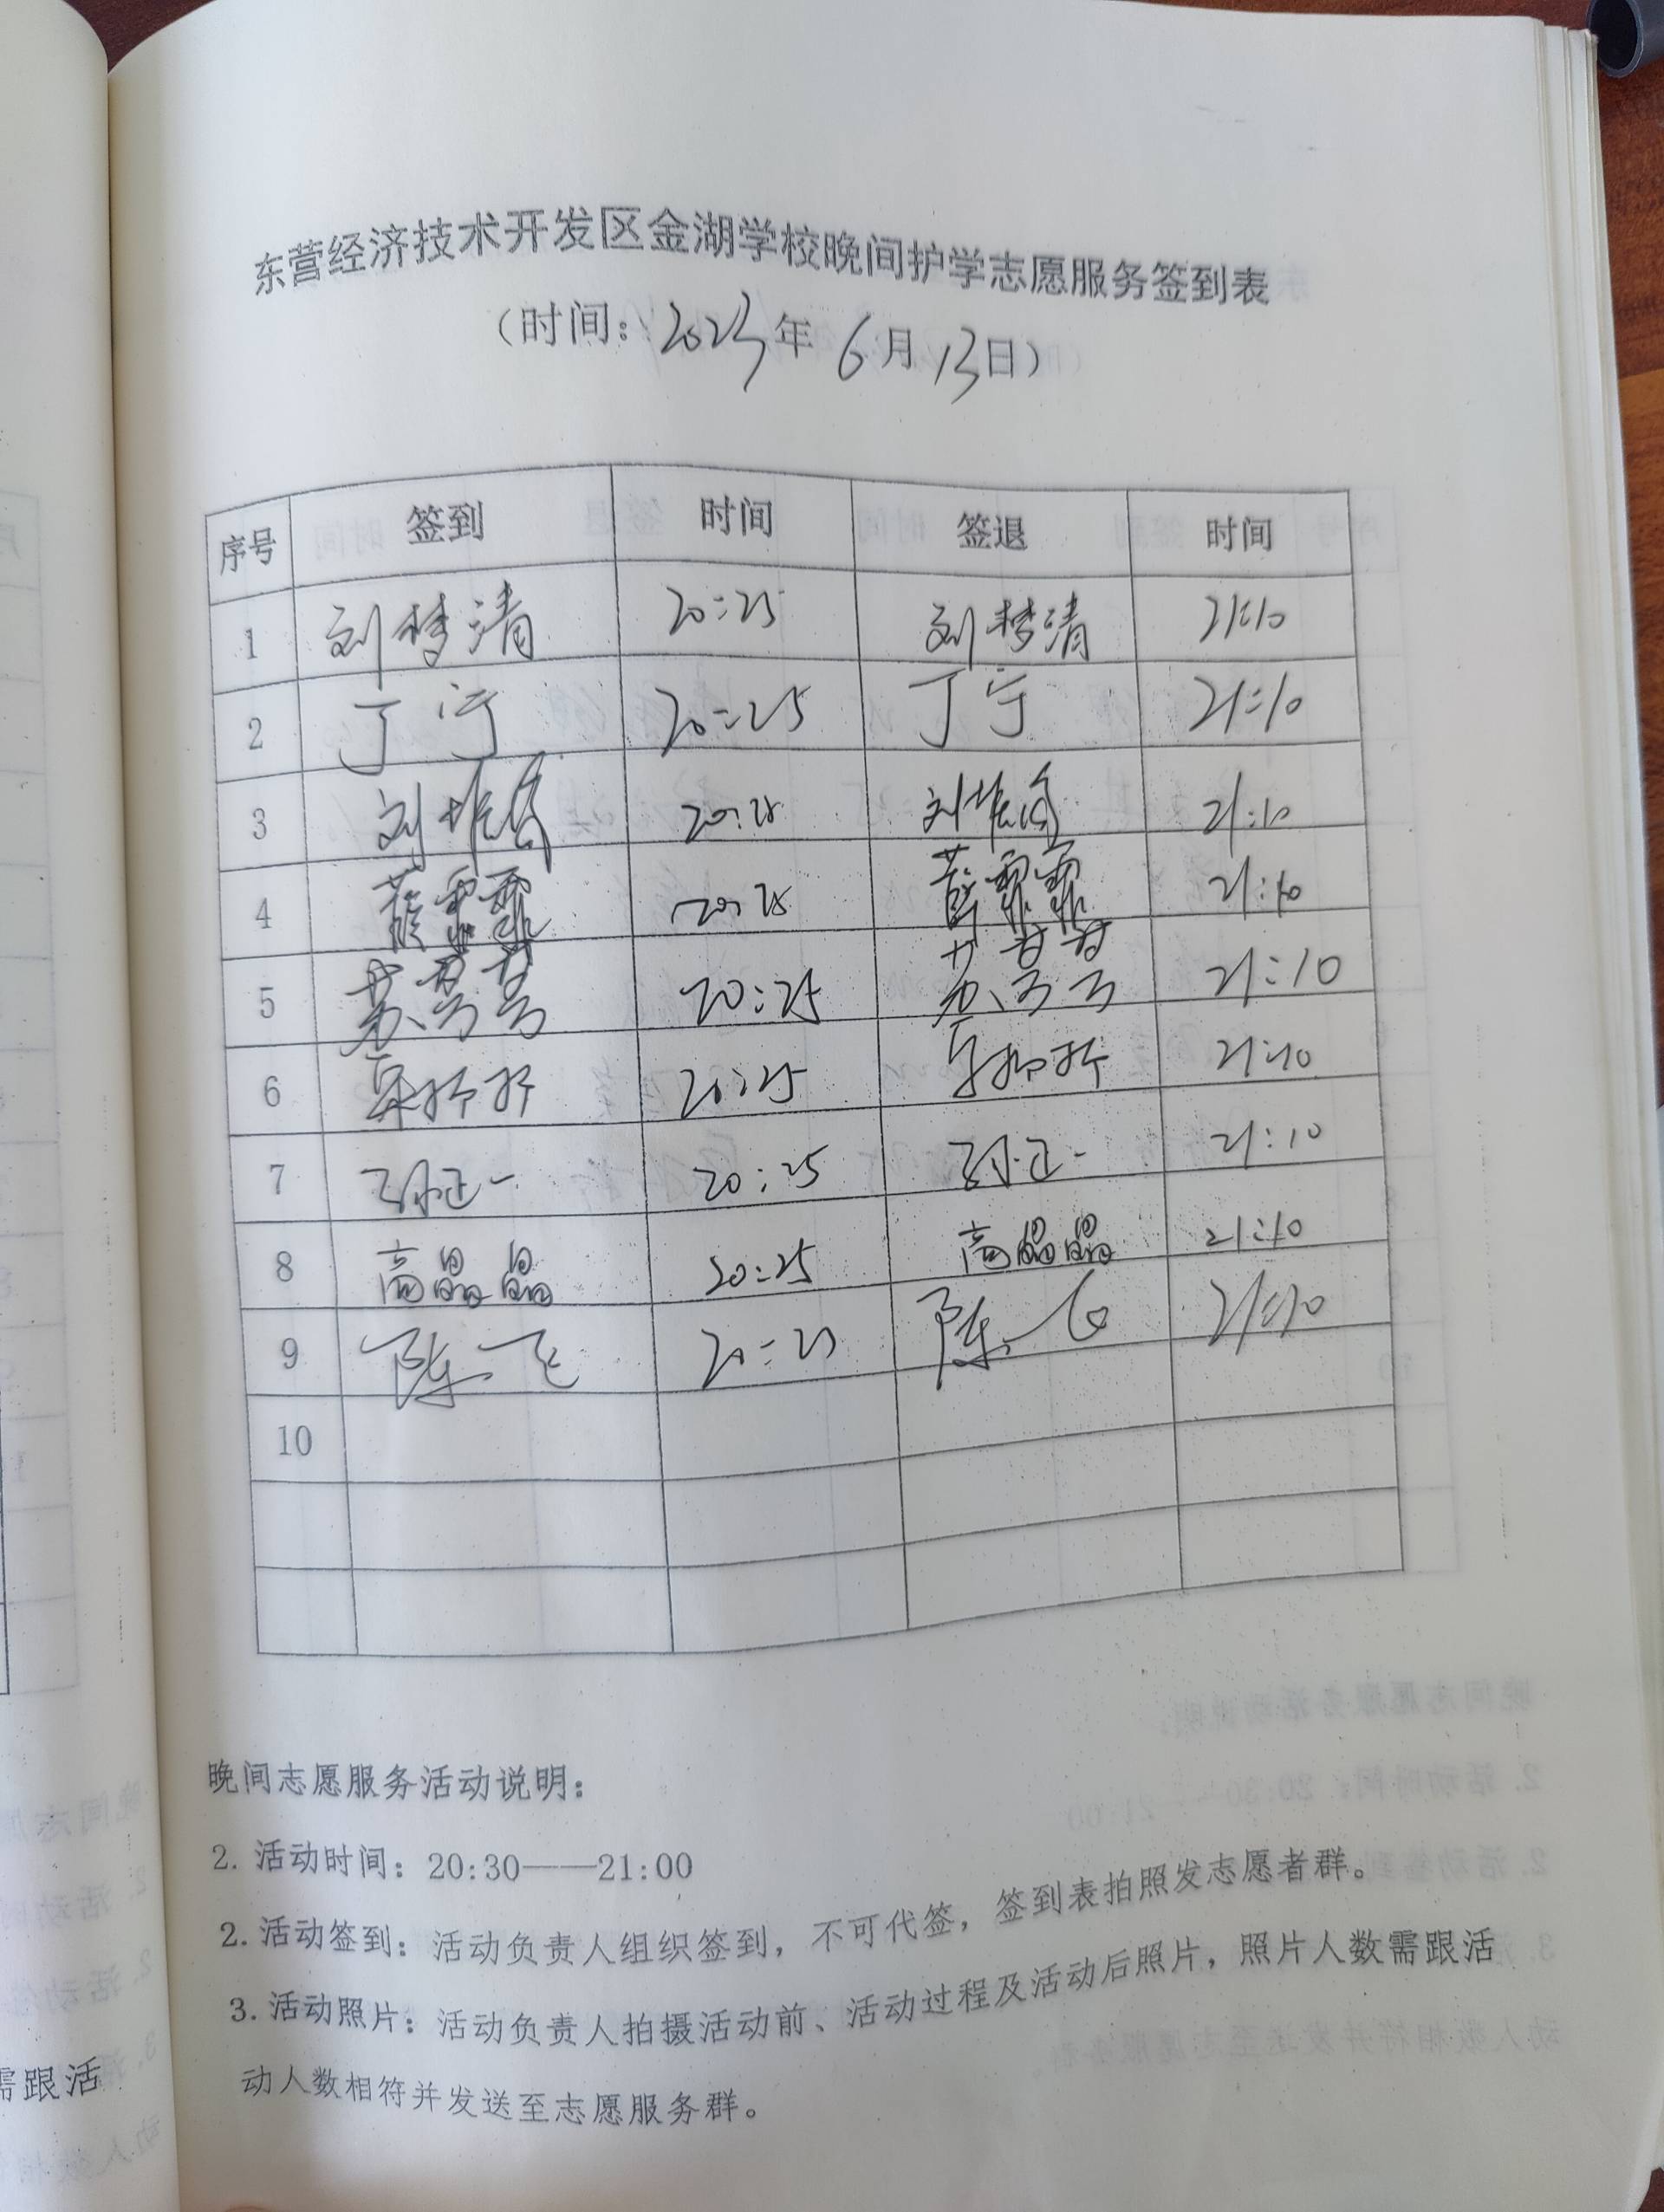 东营经济技术开发区金湖学校晚间护学志愿服务签到表
(时间: 2023年 6月 13日)
序号 签到 时间 签退 时间
1 刘梦清 20:25 刘梦清 21:10
2 丁宁 20:25 丁宁 21:10
3 刘 20:25 刘 21:10
4 薛霏霏 20:25 薛霏霏 21:10
5 苏芳芳 20:25 苏芳芳 21:10
6 20:25 21:10
7 孙正一 20:25 孙正一 21:10
8 高晶晶 20:25 高晶晶 21:10
9 陈一飞 陈一飞 21:10
10
晚间志愿服务活动说明:
2. 活动时间: 20:30——21:00
2. 活动签到: 活动负责人组织签到, 不可代签, 签到表拍照发志愿者群。
3. 活动照片: 活动负责人拍摄活动前、活动过程及活动后照片, 照片人数需跟活
动人数相符并发送至志愿服务群。
需跟活